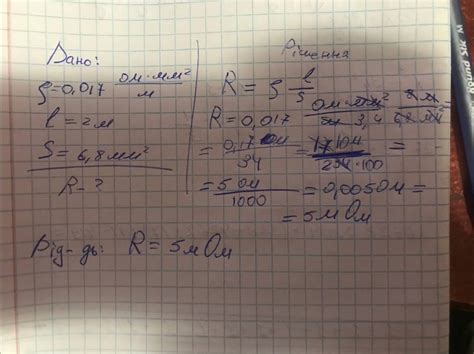 Дано:
ρ=0,017 Ом·мм²/м
l = 2м
S = 6,8мм²
R - ?
Рішення
R = ρ l/S
R = 0,017 Ом·мм²/м 2м/6,8 мм² 3,4
= 0,17 Ом/34 = 17 Ом/·100 =
= 5 Ом/1000 = 0,005 Ом =
= 5 м Ом
Від-дь: R = 5м Ом